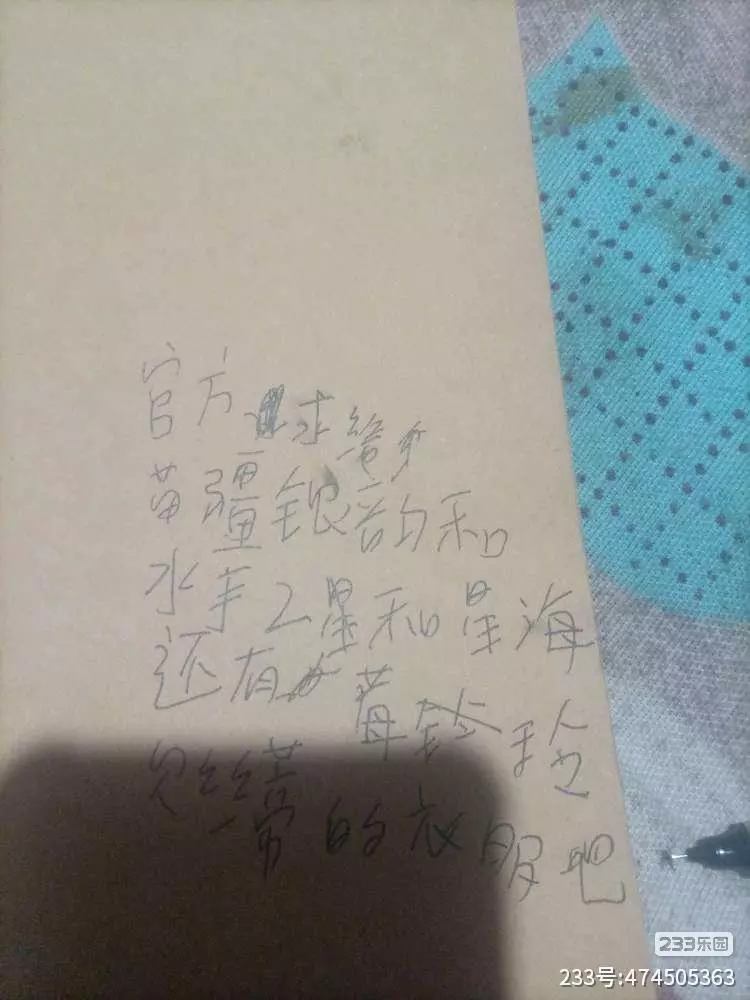 官方 求给
苗疆银韵和
水手之星和星海
还有 莓铃玲
的衣服吧
233乐园
233号:474505363